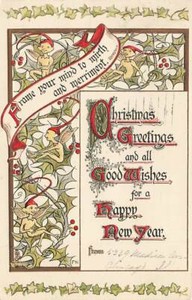 Frame your mind to mirth
and merriment.
Christmas
Greetings
and all
Good Wishes
for a
Happy
New Year.
From